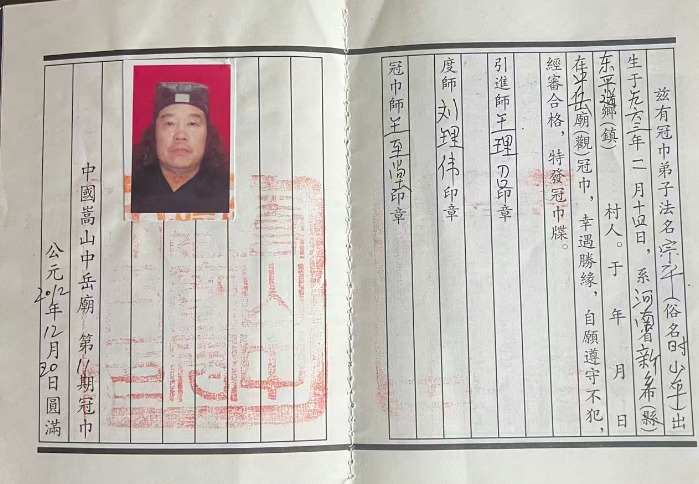 兹有冠巾弟子法名宗子(俗名时少卓)出
生于一九六三年二月十四日,系河南省新希(縣)
东平镇鄉(镇)　村人。于　年　月　日
在中岳廟(觀冠巾,幸遇勝緣,自願遵守不犯,
經審合格,特發冠巾牒。
引進師王理　印章
度師刘理伟印章
冠巾師王至　印章
中國嵩山中岳廟　第11期冠巾
公元2012年12月30日圓滿